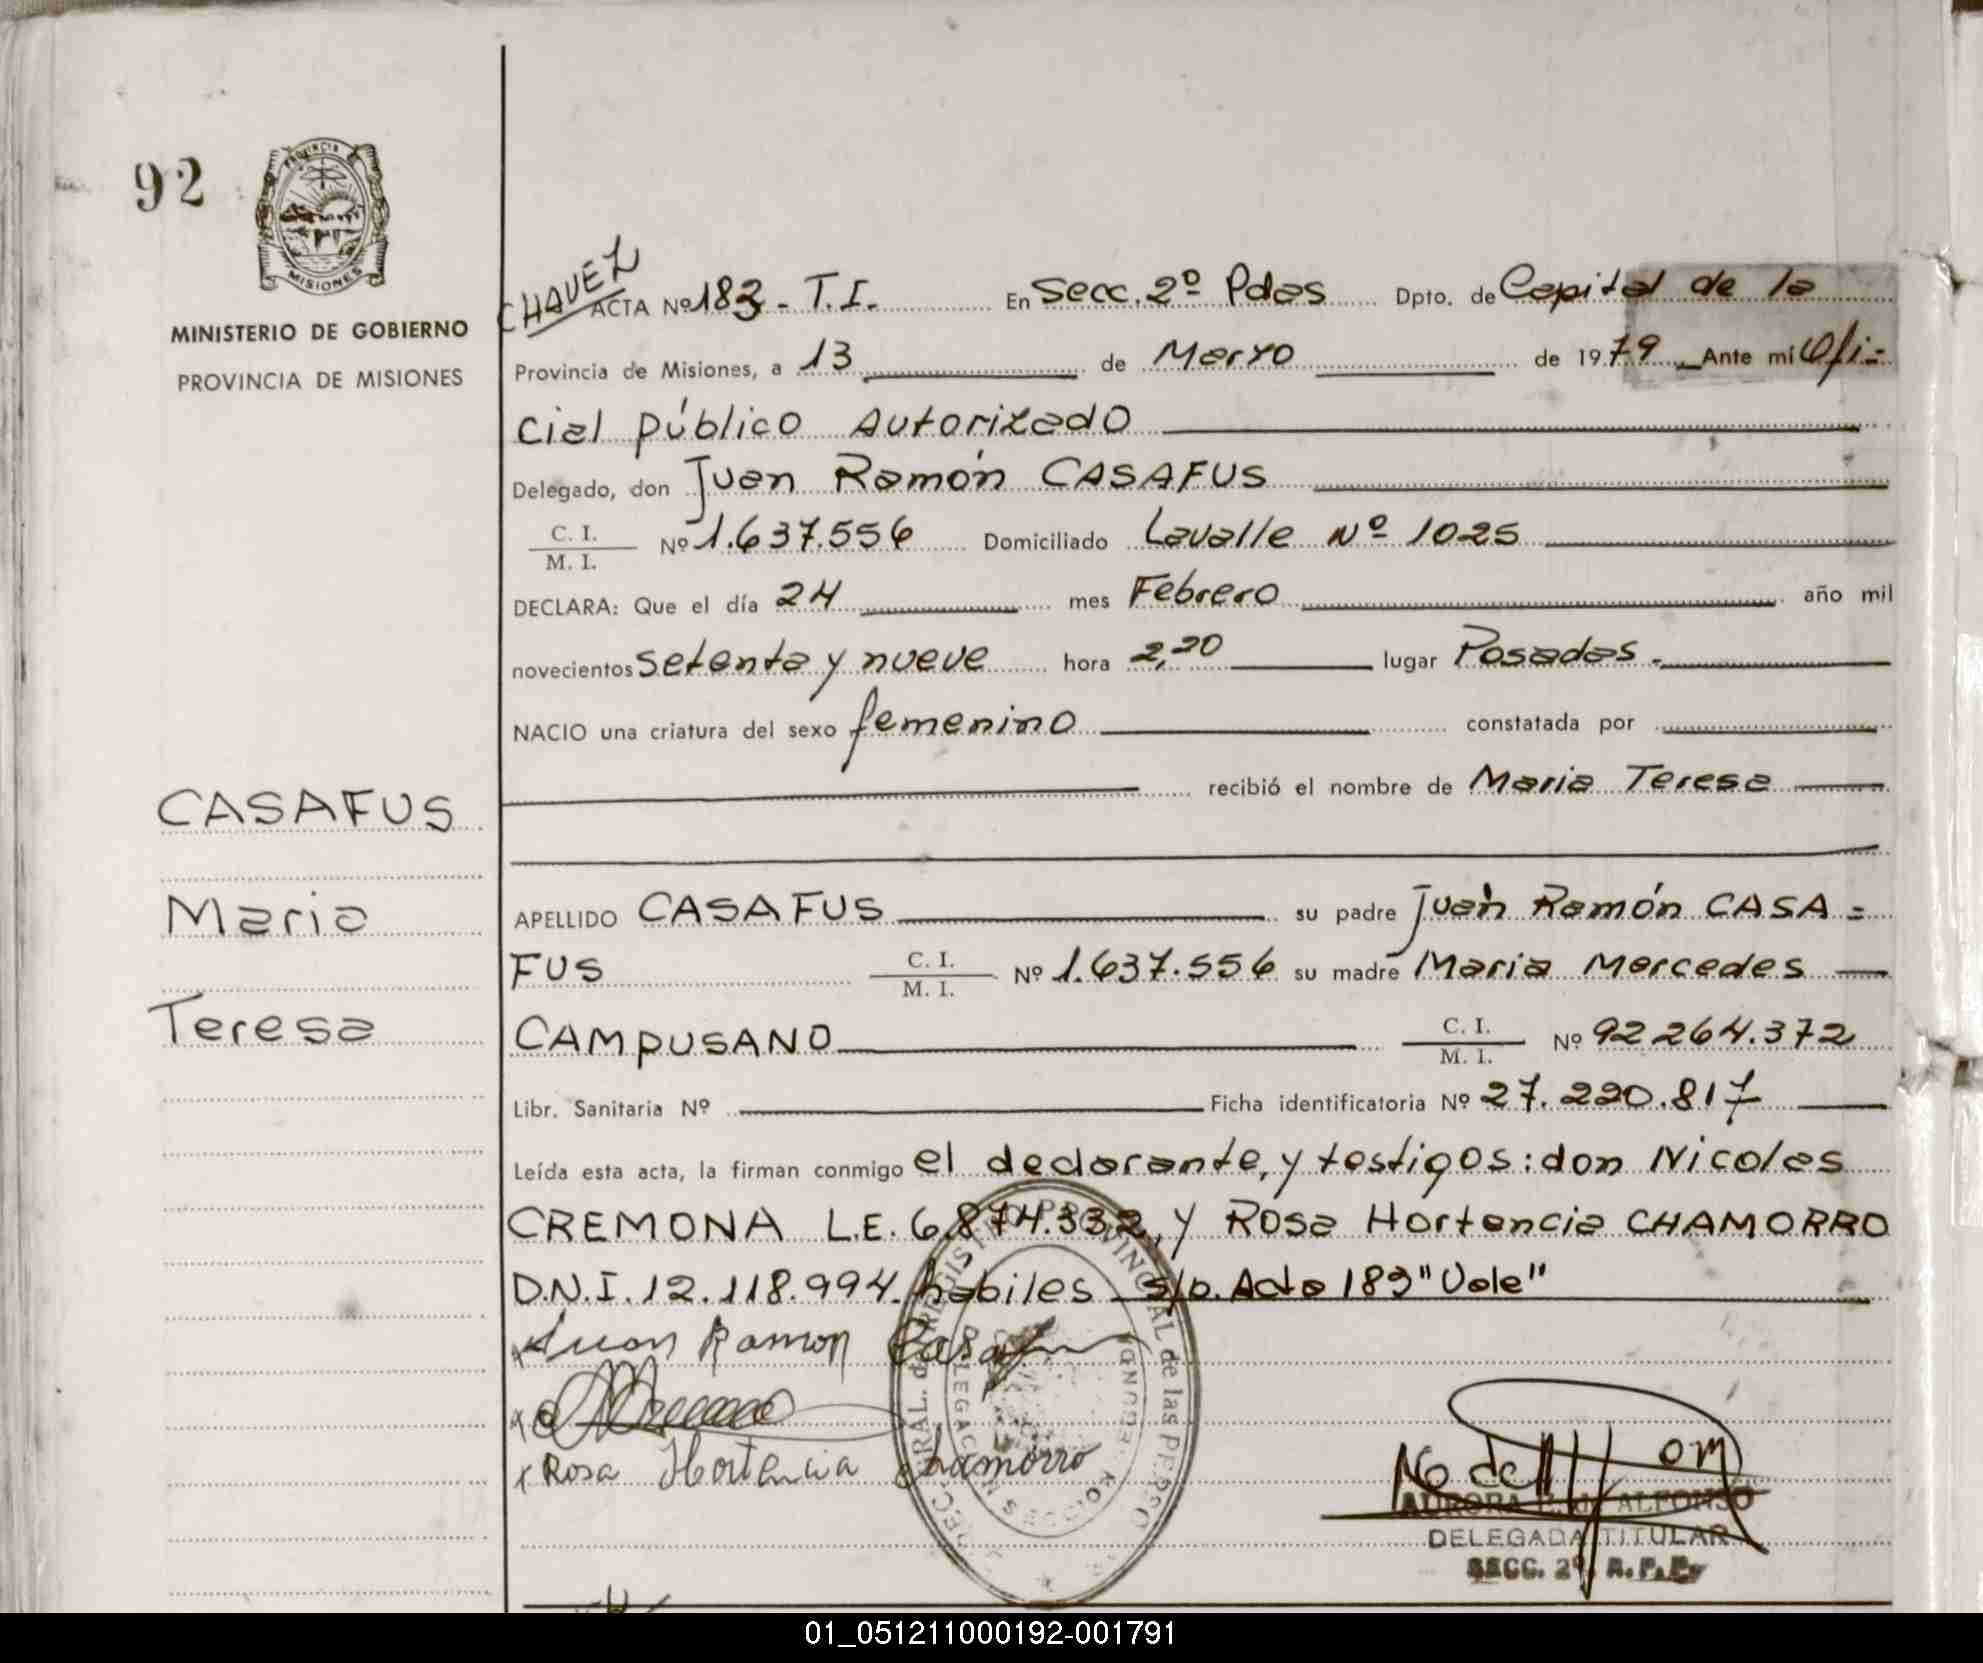 92
PROVINCIA
MISIONES
MINISTERIO DE GOBIERNO
PROVINCIA DE MISIONES
CHAVEZ
ACTA Nº 183 - T.I. En Secc. 2º Pdas Dpto. de Capital de la
Provincia de Misiones, a 13 de Marzo de 1979 Ante mi Ofi-
cial público Autorizado
Delegado, don Juan Ramón CASAFUS
C. I.
M. I. Nº 1.637.556 Domiciliado Lavalle Nº 1025
DECLARA: Que el día 24 mes Febrero año mil
novecientos setenta y nueve hora 2,20 lugar Posadas.
NACIO una criatura del sexo femenino constatada por
recibió el nombre de Maria Teresa
CASAFUS
Maria
Teresa
APELLIDO CASAFUS su padre Juan Ramón CASA-
FUS C. I. M. I. Nº 1.637.556 su madre Maria Mercedes
CAMPUSANO C. I. M. I. Nº 92 264.372
Libr. Sanitaria Nº Ficha identificatoria Nº 27.220.817
Leída esta acta, la firman conmigo el declarante, y testigos: don Nicolas
CREMONA L.E. 6.874.332, y Rosa Hortencia CHAMORRO
D.N.I. 12.118.994. habiles s/p. Acta 183 "Vale"
Juan Ramon Casafus
Rosa Hortencia Chamorro
AURORA ALFONSO
DELEGADA TITULAR
SECC. 2º R.P.P.
01_051211000192-001791